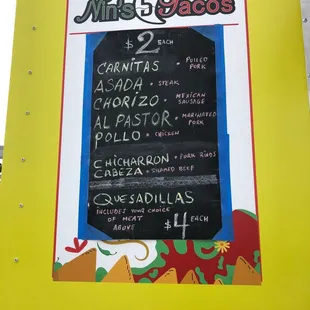 Mn's 5 Tacos
$2 EACH
CARNITAS • PULLED PORK
ASADA • STEAK
CHORIZO • MEXICAN SAUSAGE
AL PASTOR • MARINATED PORK
POLLO • CHICKEN
CHICHARRON • PORK RINDS
CABEZA •  BEEF
QUESADILLAS
INCLUDES YOUR CHOICE
OF MEAT
ABOVE
$4 EACH